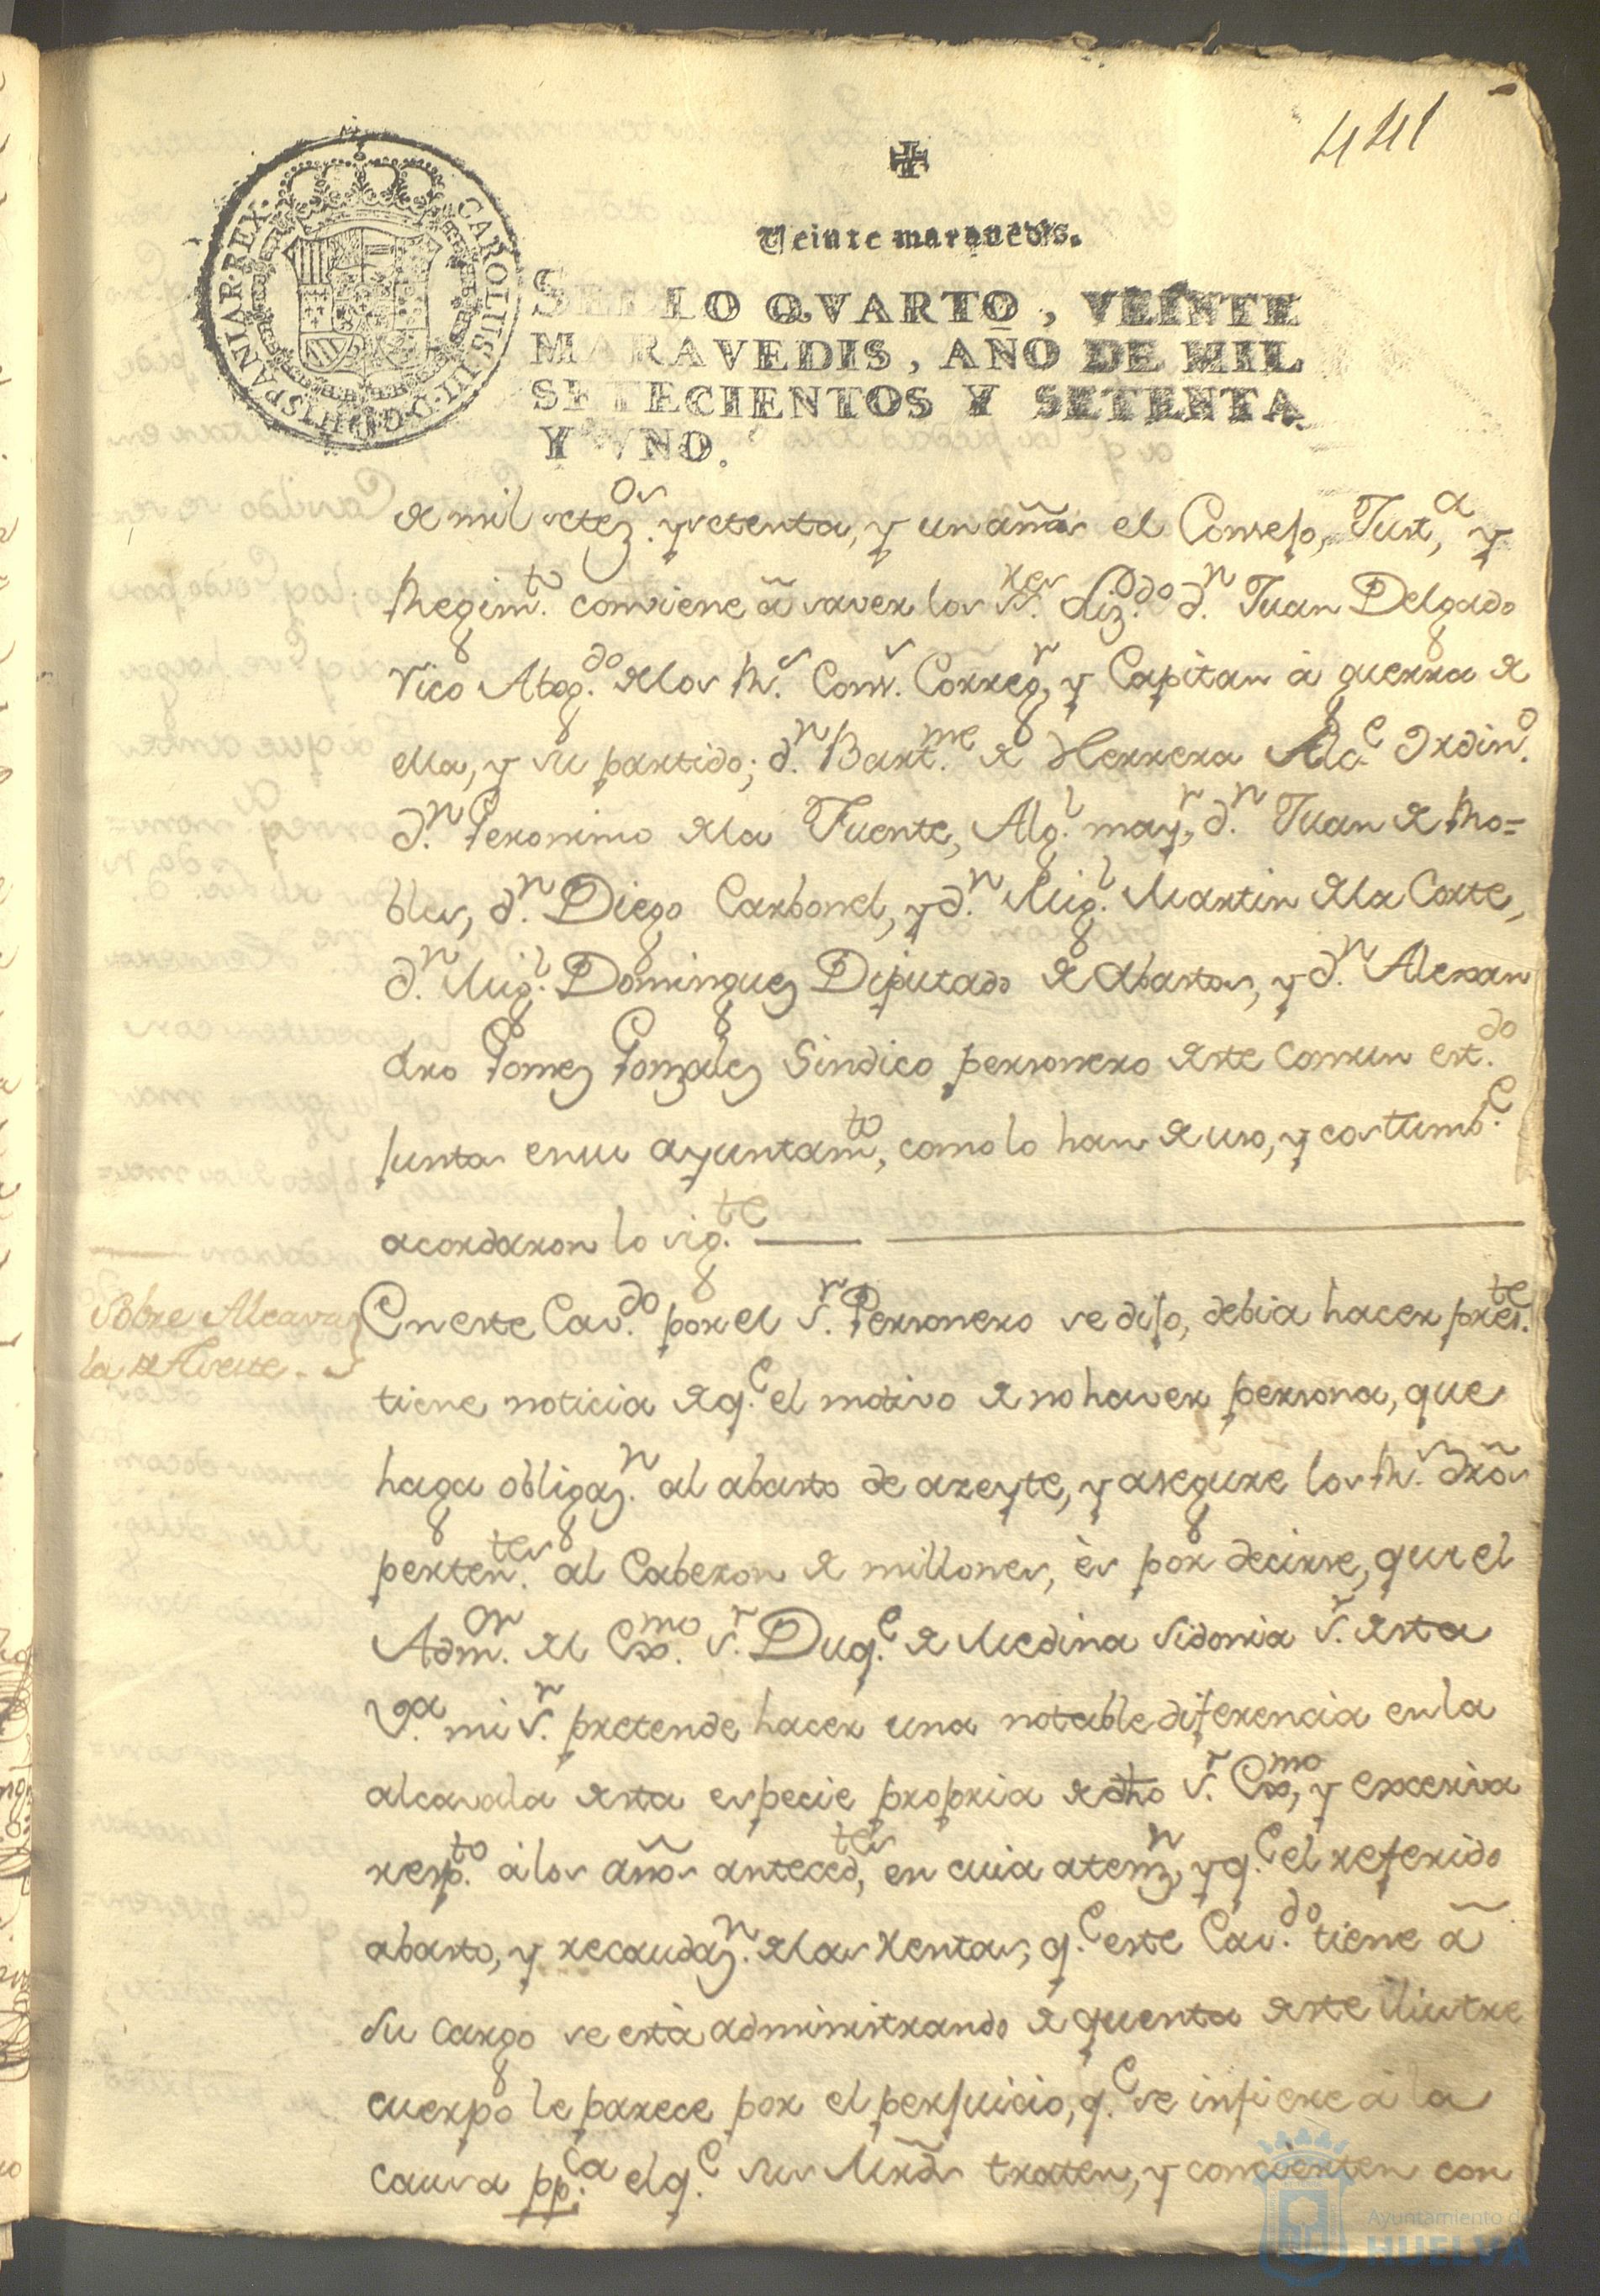 441
Veinte maravedis.
CAROLUS·III·D·G·HISPANIAR·REX·
SELLO QVARTO, VEINTE
MARAVEDIS, AÑO DE MIL
SETECIENTOS Y SETENTA
Y VNO.
de mil setez.os y setenta, y un años el Consejo, Just.a, y
Regim.to conviene à saver los S.res Liz.do d.n Juan Delgado
Vico Abog.do de los R.s Cons.s Correg.r, y Capitan à guerra de
ella, y su partido; d.n Bart.me de Herrera Alc.e Ordin.o
d.n Geronimo de la Fuente, Alg.l may.r, d.n Juan de Ro=
bles, d.n Diego Carbonel, y d.n Mig.l Martin de la Corte,
d.n Mig.l Dominguez Diputado de Abastos, y d.n Alexan
dro Gomez Gonzalez Sindico personero de este comun est.do
juntos en su ayuntam.to, como lo han de uso, y costumb.e
acordaron lo sig.te
Sobre Alcava
la de Aceite.
En este Cav.do por el S.r Personero se dijo, debia hacer pres.te
tiene noticia de q.e el motivo de no haver persona, que
haga obligaz.n al abasto de azeyte, y asegure los R.s dr̃os
perten.tes al Cabezon de millones, ès por decirse, que el
Adm.or del Exmo. S.r Duq.e de Medina Sidonia S.r de esta
V.a mi S.r pretende hacer una notable diferencia en la
alcavala de esta especie propria de dho S.r Exmo, y excesiva
resp.to à los años anteced.tes, en cuia atenz.n, y q.e el referido
abasto, y recaudaz.n de las Rentas, q.e este Cav.do tiene à
su cargo se està administrando de quenta de este Ilustre
cuerpo le parece por el perjuicio, q.e se infiere à la
causa pp.ca el q.e sus Mrds traten, y concierten con
Ayuntamiento de
HUELVA